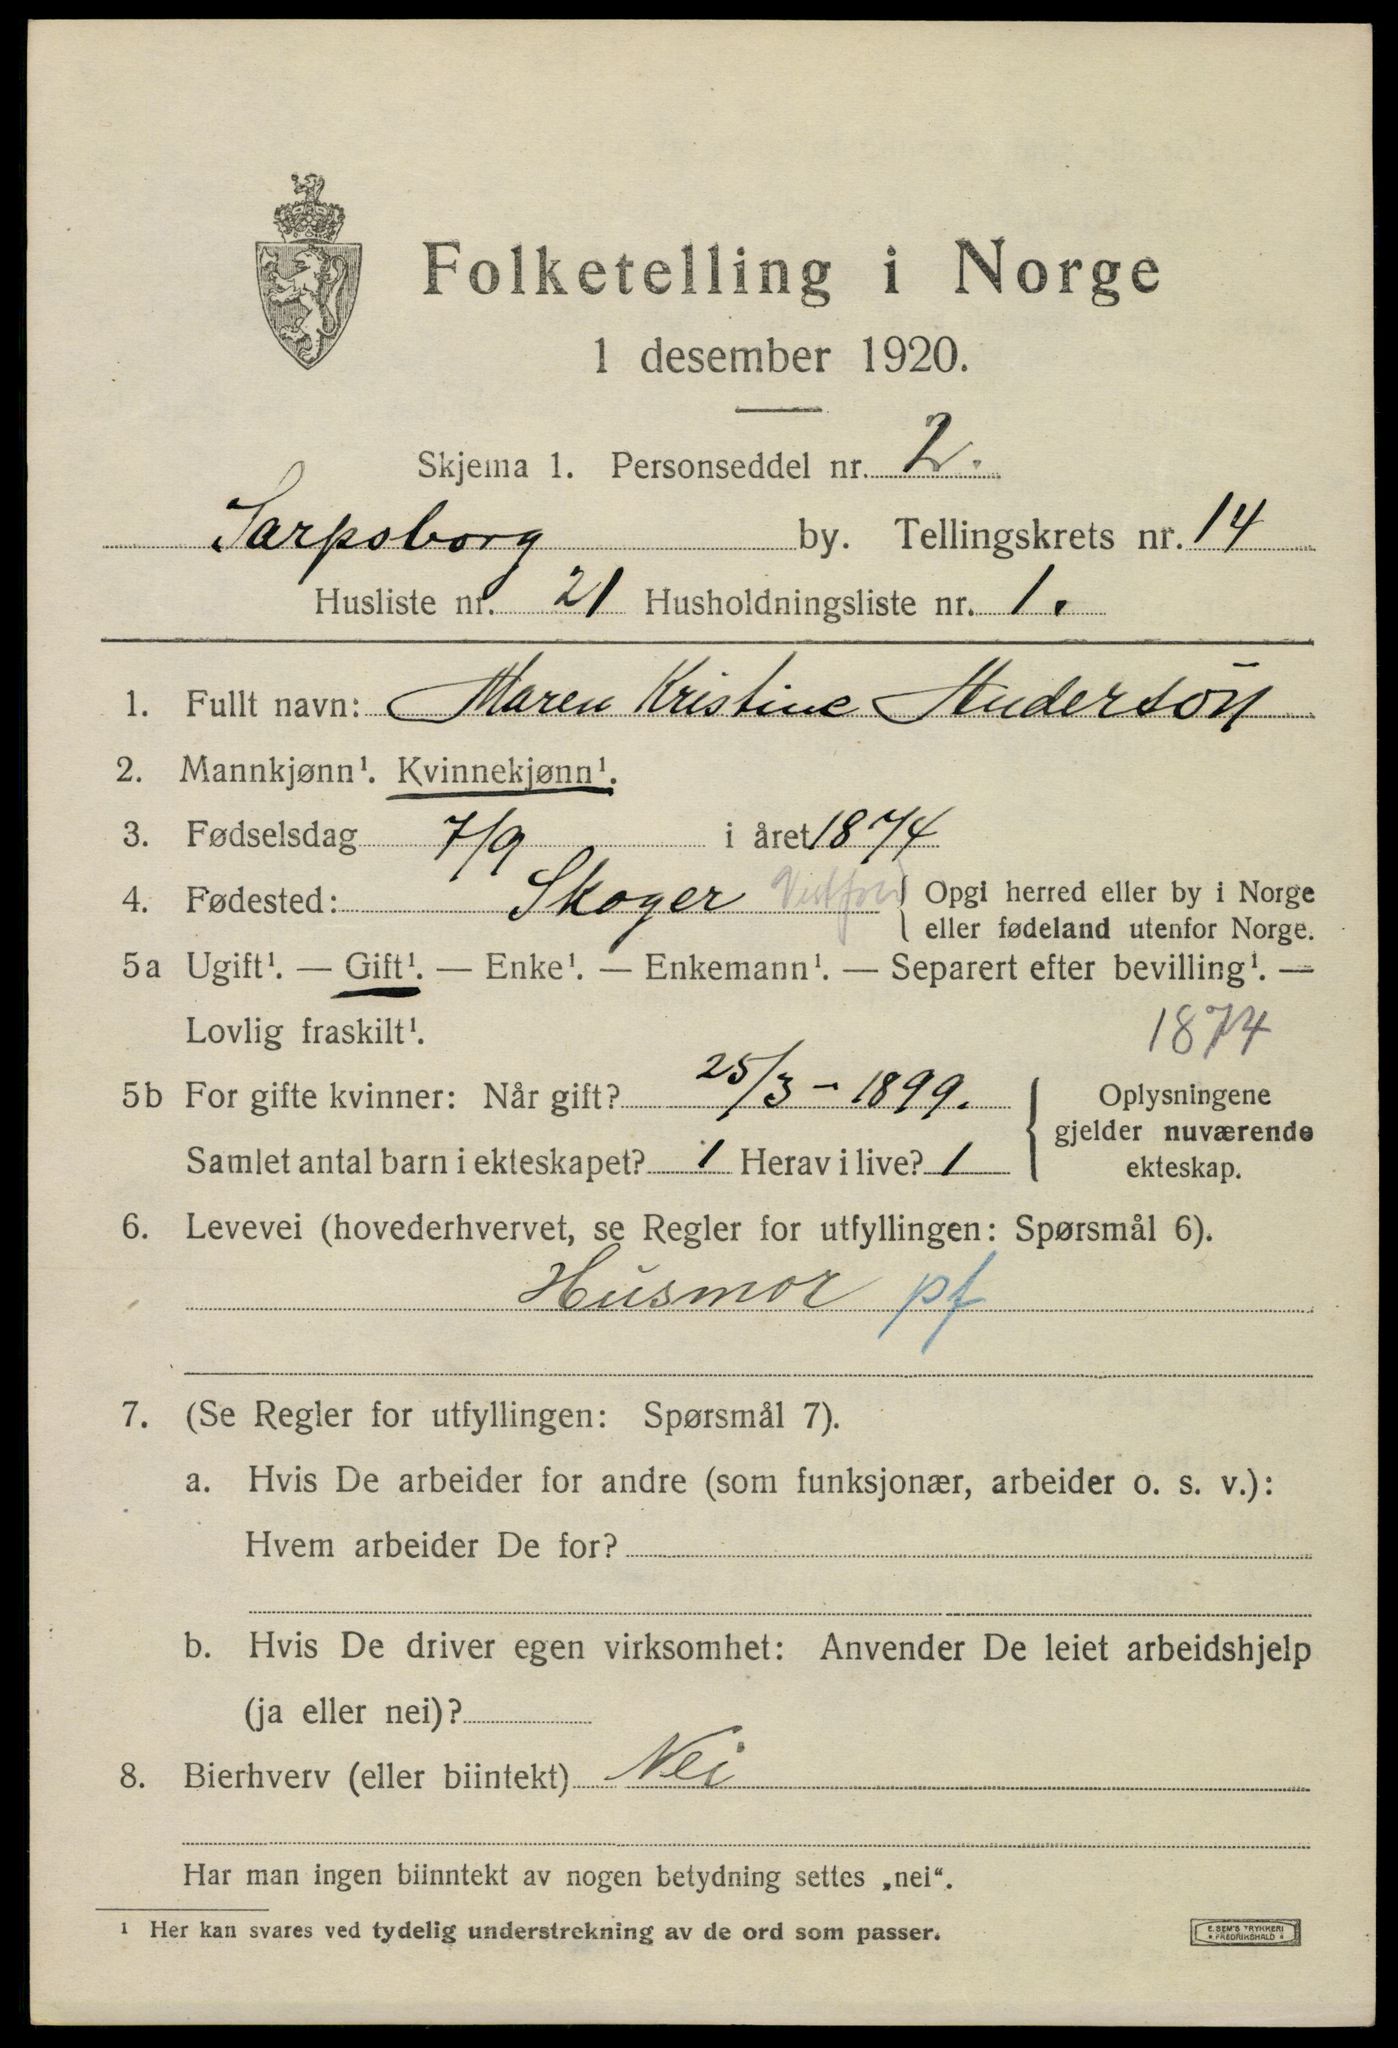 Folketelling i Norge
1 desember 1920.
Skjema 1. Personseddel nr. 2.
Sarpsborg by. Tellingskrets nr. 14
Husliste nr. 21 Husholdningsliste nr. 1.
1. Fullt navn: Maren Kristine Anderson
2. Mannkjønn¹. Kvinnekjønn¹.
3. Fødselsdag 7/9 i året 1874
4. Fødested: Skoger Vestfold { Opgi herred eller by i Norge
eller fødeland utenfor Norge.
5a Ugift¹. — Gift¹. — Enke¹. — Enkemann¹. — Separert efter bevilling¹. —
Lovlig fraskilt¹. 1874
5b For gifte kvinner: Når gift? 25/3 - 1899. { Oplysningene
gjelder nuværende
Samlet antal barn i ekteskapet? 1 Herav i live? 1 ekteskap.
6. Levevei (hovederhvervet, se Regler for utfyllingen: Spørsmål 6).
Husmor pf
7. (Se Regler for utfyllingen: Spørsmål 7).
a. Hvis De arbeider for andre (som funksjonær, arbeider o. s. v.):
Hvem arbeider De for?
b. Hvis De driver egen virksomhet: Anvender De leiet arbeidshjelp
(ja eller nei)?
8. Bierhverv (eller biintekt) Nei
Har man ingen biinntekt av nogen betydning settes „nei“.
¹ Her kan svares ved tydelig understrekning av de ord som passer.
E. SEM'S TRYKKERI
FREDRIKSHALD